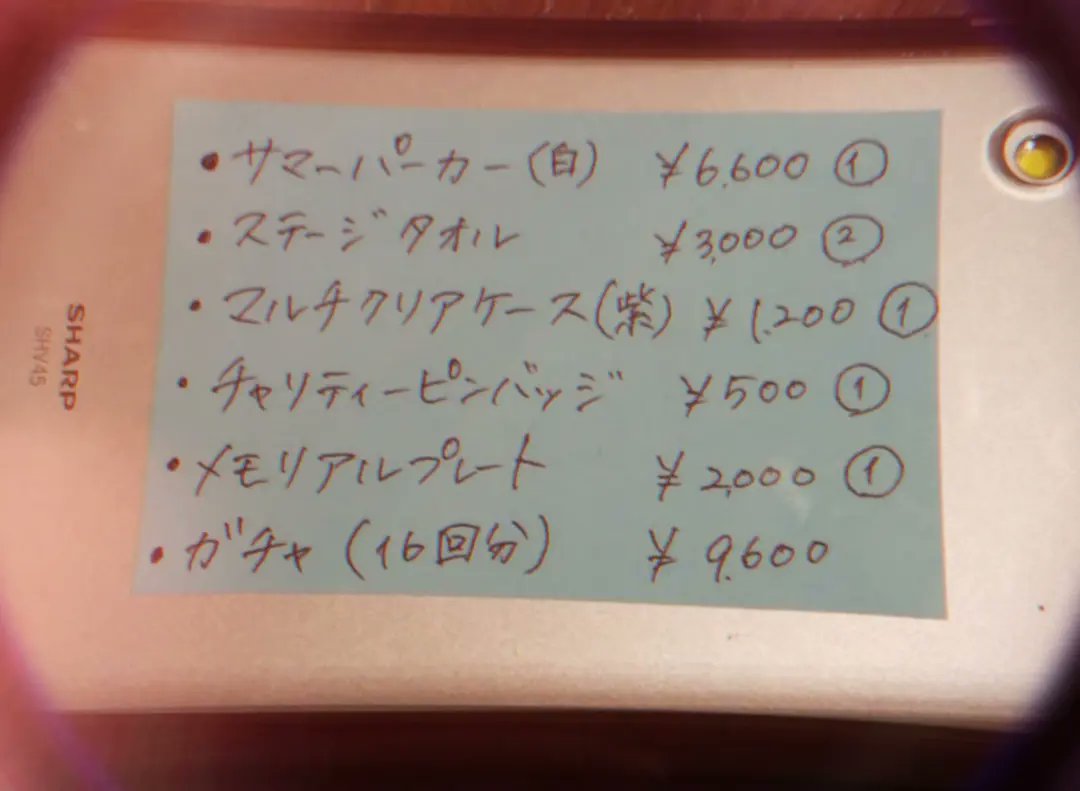 • サマーパーカー(白) ¥6,600 ①
• ステージタオル ¥3,000 ②
• マルチクリアケース(紫) ¥1,200 ①
• チャリティーピンバッジ ¥500 ①
• メモリアルプレート ¥2,000 ①
• ガチャ(16回分) ¥9,600
SHARP
SHV45